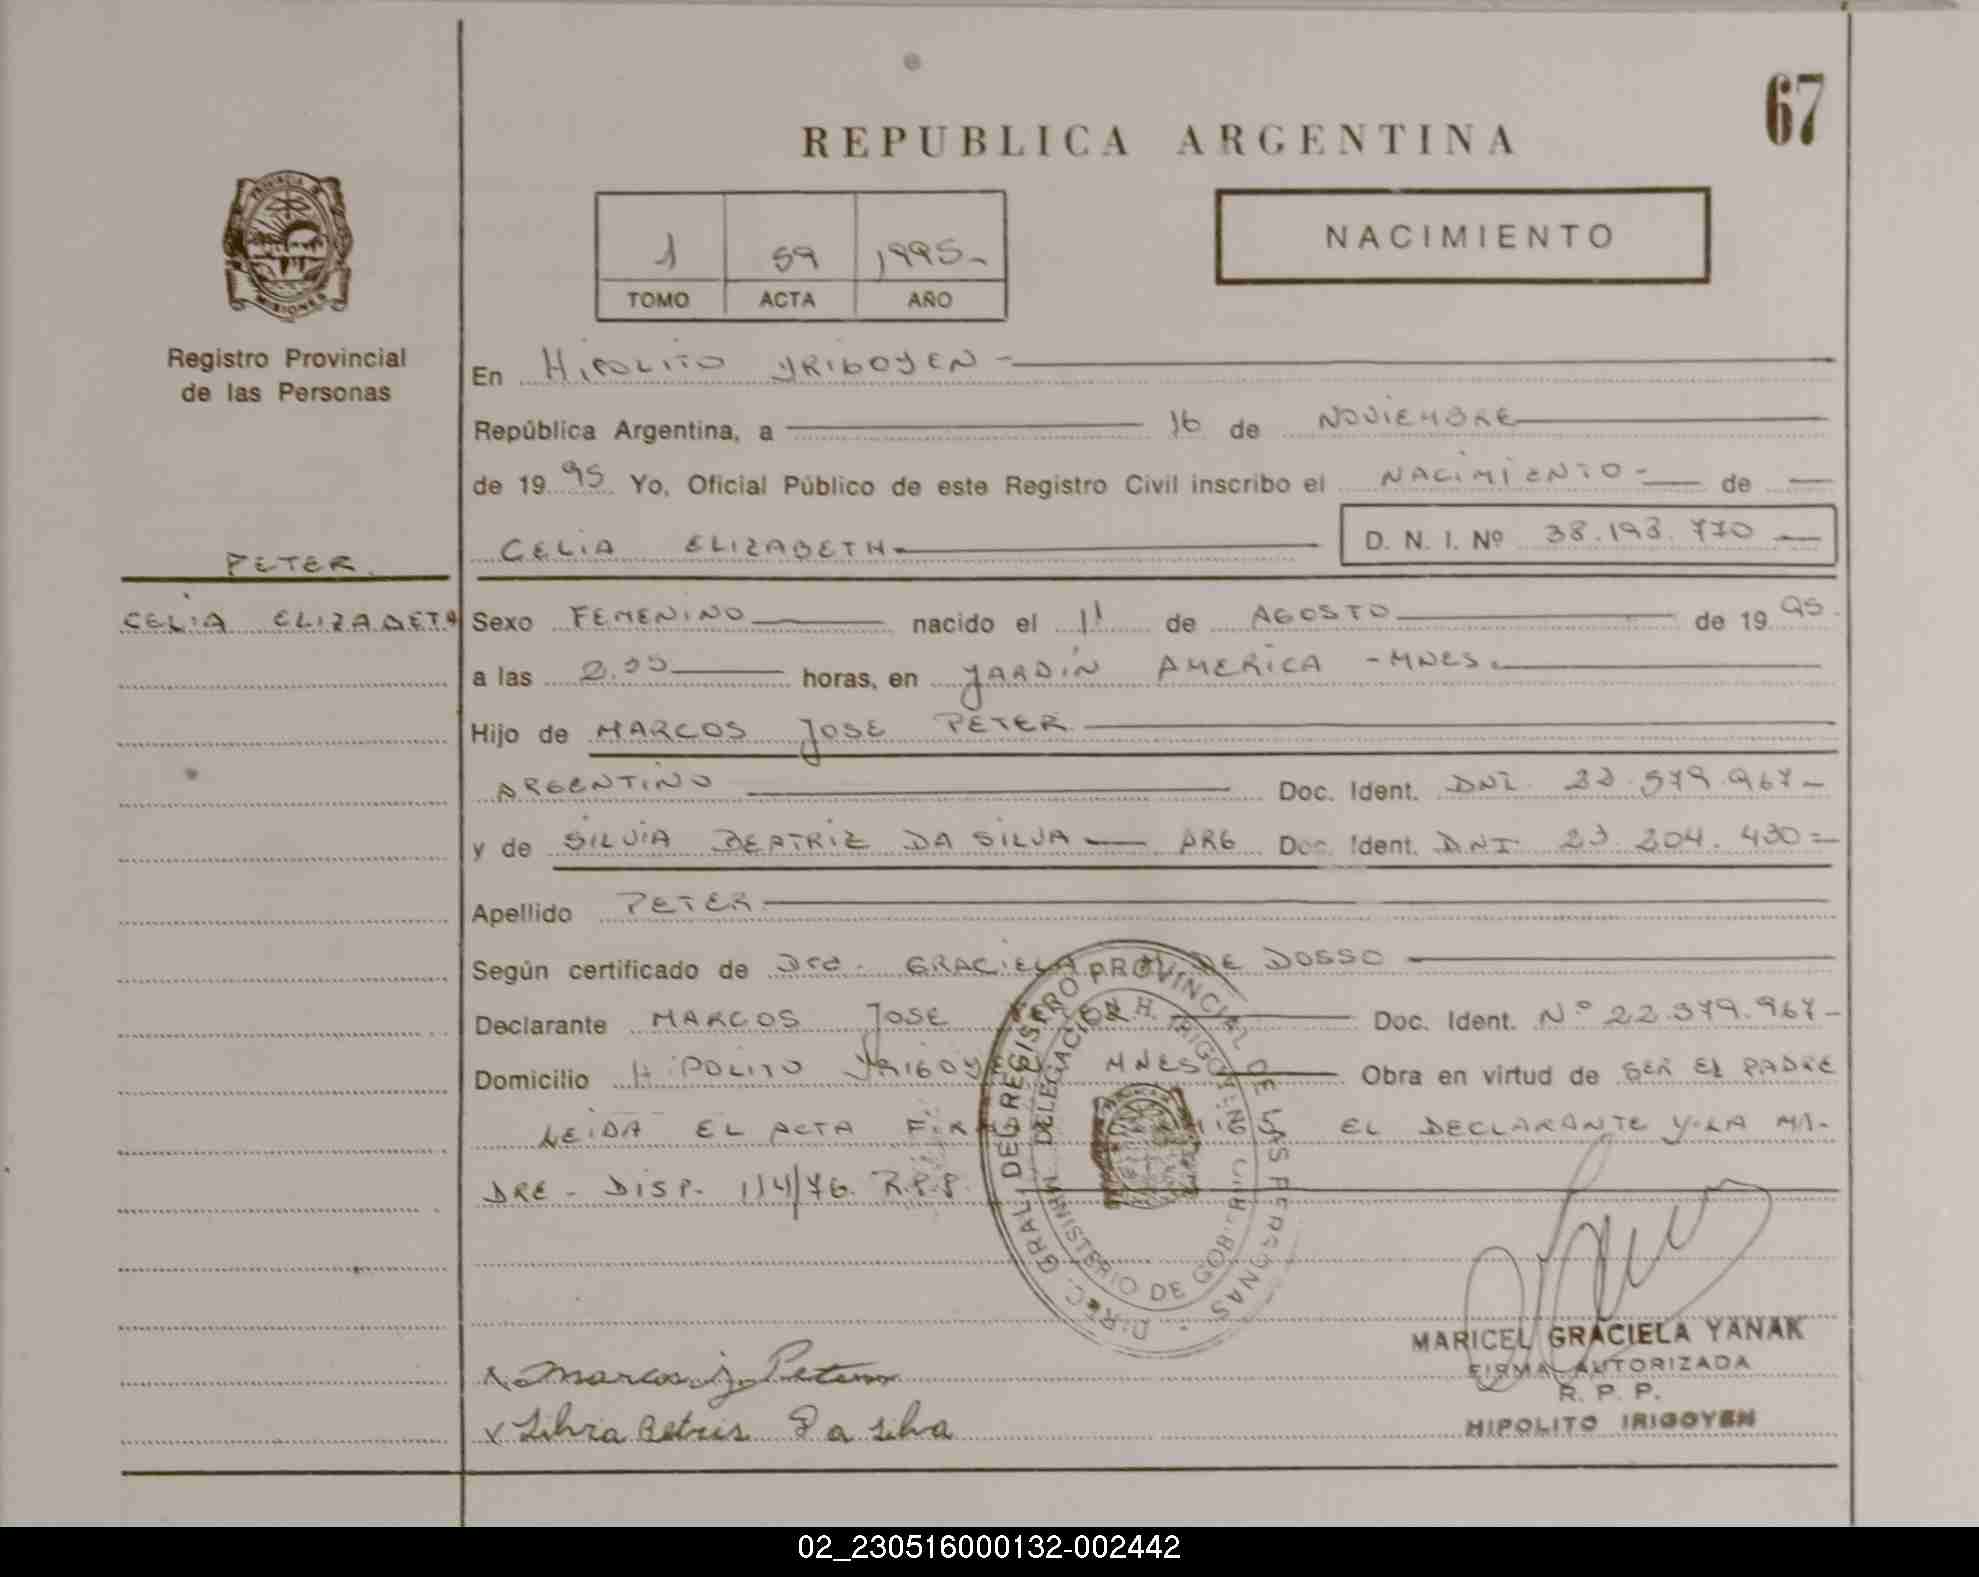 67
REPUBLICA ARGENTINA
PROVINCIA D
MISIONES
1 59 1995-
TOMO ACTA AÑO
NACIMIENTO
Registro Provincial
de las Personas
En HIPOLITO YRIGOYEN -
República Argentina, a 16 de NOVIEMBRE
de 19 95 Yo, Oficial Público de este Registro Civil inscribo el NACIMIENTO - de
PETER.
CELIA ELIZABETH D. N. I. Nº 38.193.770
CELIA ELIZABETH
Sexo FEMENINO nacido el 11 de AGOSTO de 19 95.
a las horas, en JARDIN AMERICA - MNES.
Hijo de MARCOS JOSE PETER
ARGENTINO Doc. Ident. DNI. 22.979.967-
y de SILVIA BEATRIZ DA SILVA ARG Doc. Ident. DNI. 23.204.430=
Apellido PETER
Según certificado de GRACIELA DE DOSSO
Declarante MARCOS JOSE Doc. Ident. Nº 22.979.967-
Domicilio HIPOLITO YRIGOYEN MNES Obra en virtud de SER EL PADRE
LEIDA EL ACTA EL DECLARANTE Y LA MA-
DRE - DISP. 114/76. R.P.P.
DIREC. GRAL. DEL REGISTRO PROVINCIAL DE LAS PERSONAS
MINISTERIO DE GOB.
DELEGACION H. IRIGOYEN
Marcos J. Peter
Silvia Betris Da Silva
MARICEL GRACIELA YANAK
FIRMA AUTORIZADA
R. P. P.
HIPOLITO IRIGOYEN
02_230516000132-002442